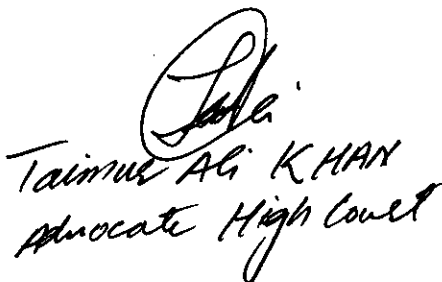 Taimur Ali KHAN
Advocate High Court